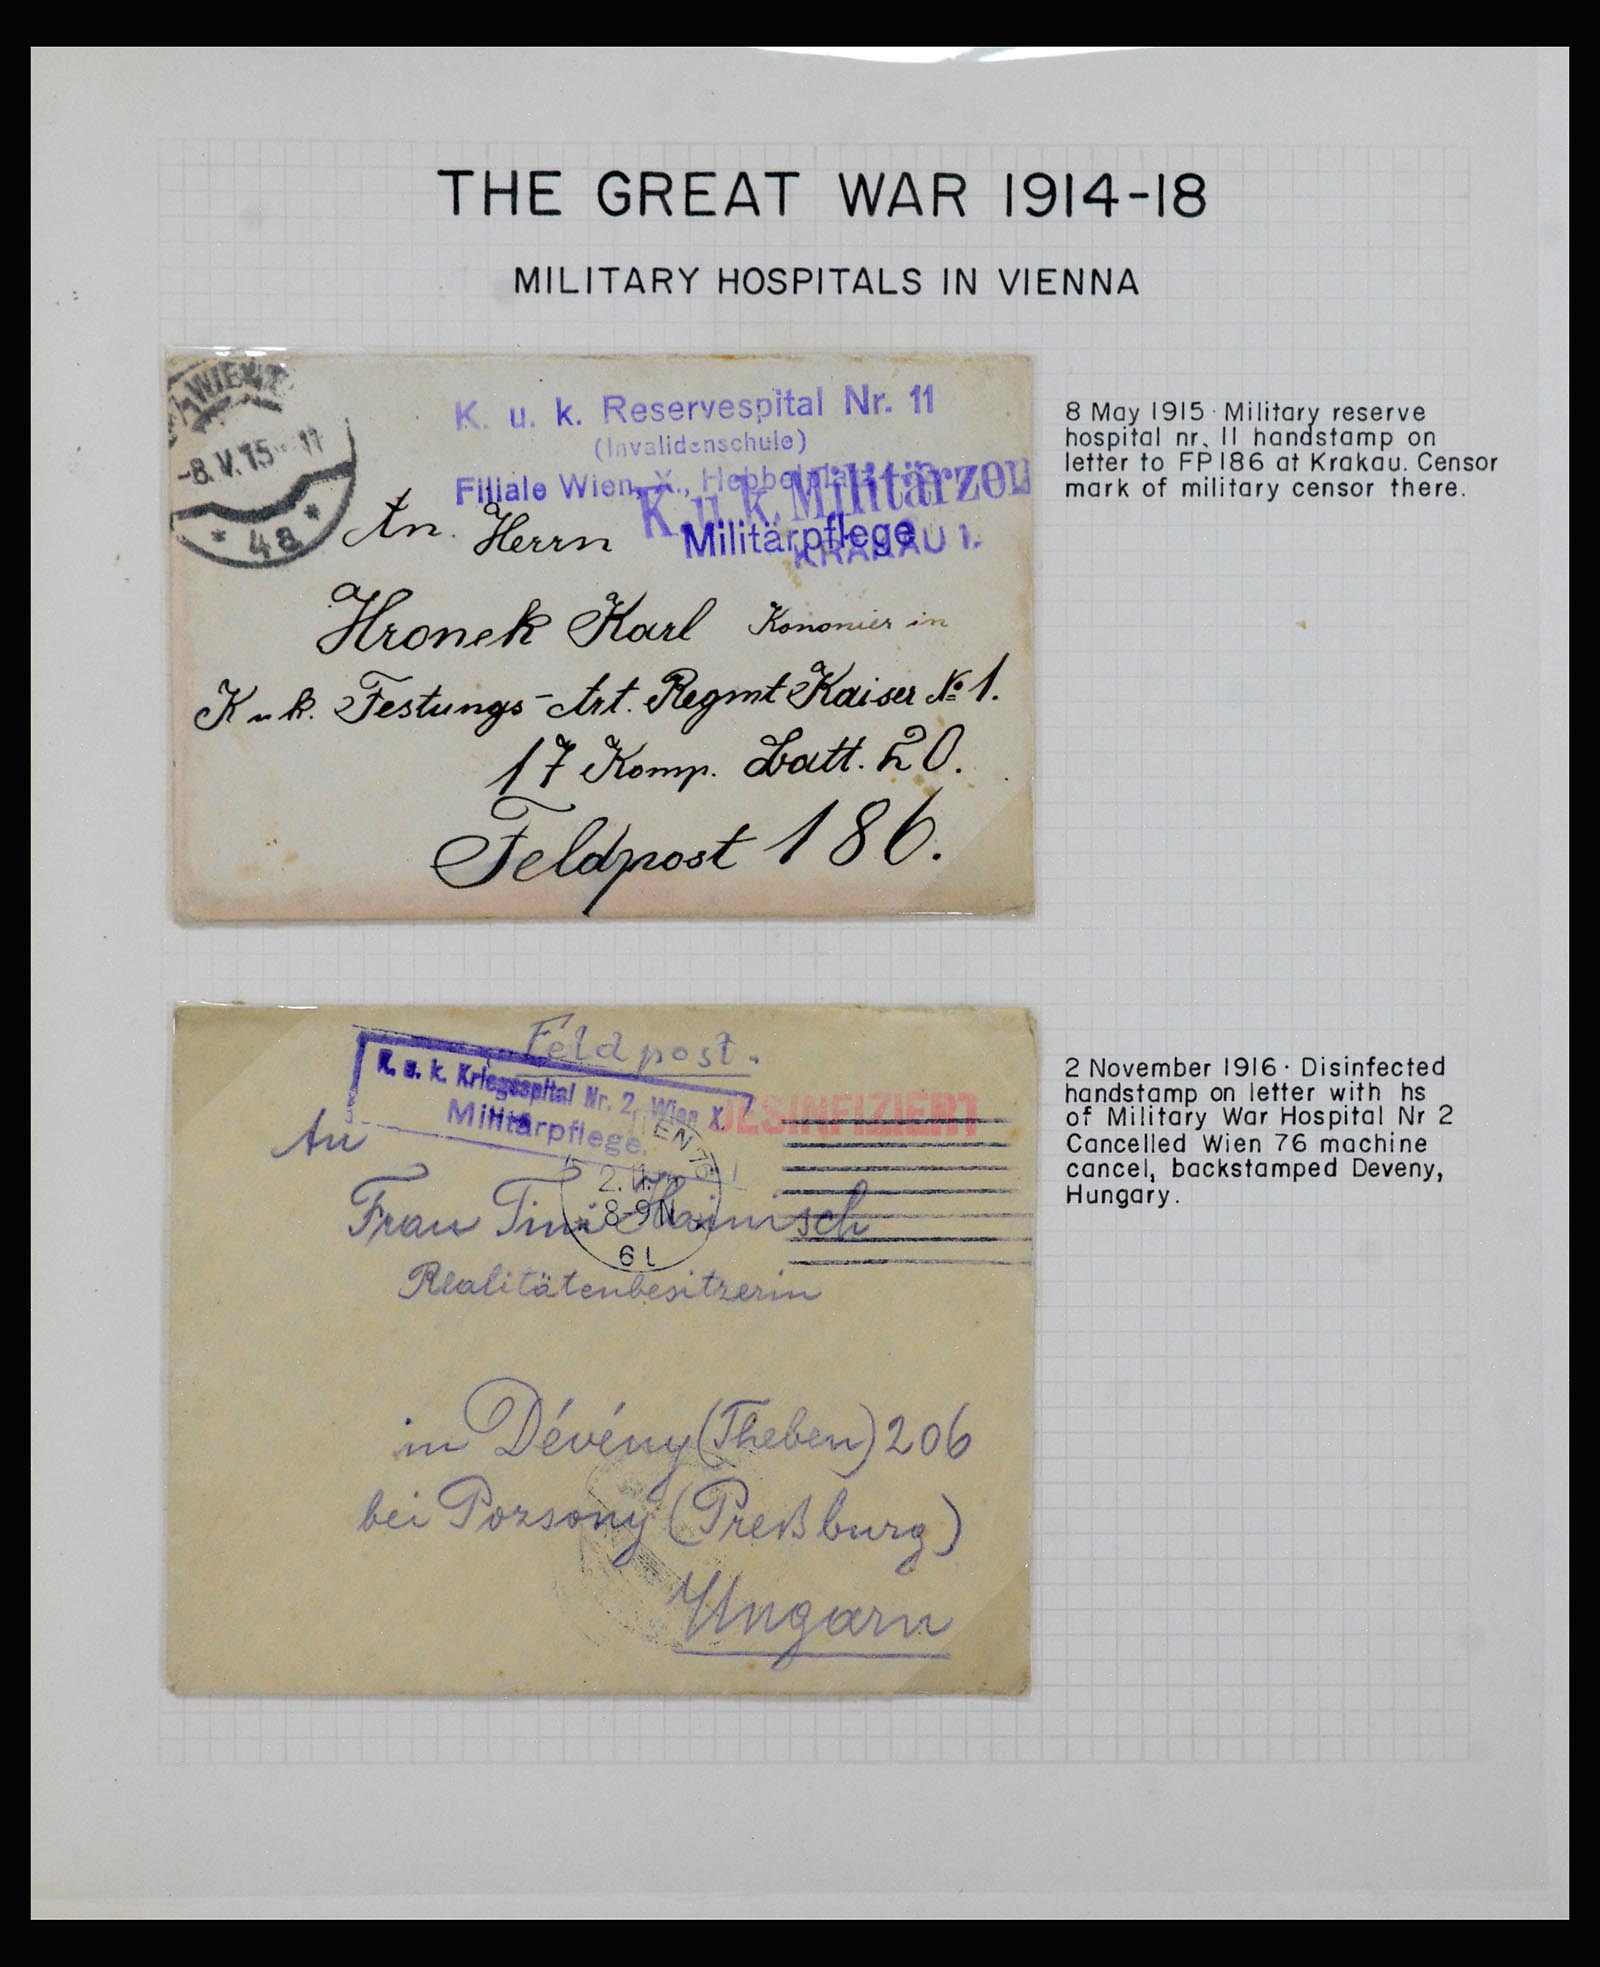 THE GREAT WAR 1914-18
MILITARY HOSPITALS IN VIENNA
WIEN
-8.V.15 11
* 4a *
K. u. k. Reservespital Nr. 11
(Invalidenschule)
Filiale Wien, X.,
K. u. k. Militärzen
Militärpflege
KRAKAU 1.
An Herrn
Hronek Karl Kononier in
K u k. Festungs-Art. Regmt Kaiser № 1.
17 Komp. Batt. 20.
Feldpost 186.
8 May 1915 · Military reserve
hospital nr. 11 handstamp on
letter to FP186 at Krakau. Censor
mark of military censor there.
Feldpost.
K. u. k. Kriegsspital Nr. 2, Wien X.
Militärpflege.
DESINFIZIERT
EN 76
2.
8-9N
6 1
An
Frau Tini Hainisch
Realitätenbesitzerin
in Dévény (Theben) 206
bei Pozsony (Preßburg)
Ungarn
2 November 1916 · Disinfected
handstamp on letter with hs
of Military War Hospital Nr 2
Cancelled Wien 76 machine
cancel, backstamped Deveny,
Hungary.